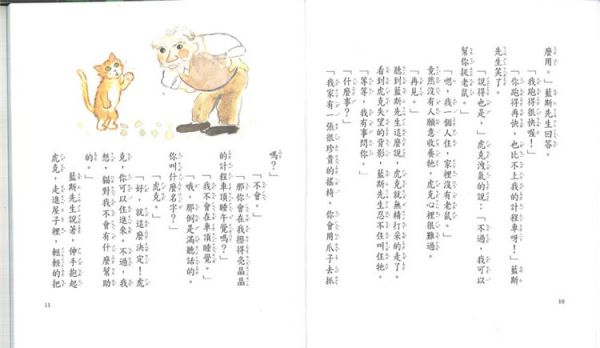 麼用。」藍斯先生回答。
「我跑得很快喔!」
「你跑得再快,也比不上我的計程車呀!」藍斯
先生笑了。
「說得也是,」虎克洩氣的說:「不過,我可以
幫你捉老鼠。」
「嗯,我一個人住,家裡沒有老鼠。」
竟然沒有人願意收養牠,虎克心裡很難過。
「再見。」
聽到藍斯先生這麼說,虎克就無精打采的走了。
看到虎克失望的背影,藍斯先生忍不住叫住牠。
「等等,我有事問你。」
「什麼事?」
「我家有一張很珍貴的搖椅,你會用爪子去抓
10
嗎?」
「不會。」
「那你會在我擦得亮晶晶
的計程車頂睡午覺嗎?」
「我不會在車頂睡覺。」
「哦,那倒是滿聽話的。
你叫什麼名字?」
「虎克。」
「好,就這麼決定!虎
克,你可以住進來。不過,我
想,貓對我不會有什麼幫助
的。」
藍斯先生說著,伸手抱起
虎克,走進屋子裡,輕輕的把
11